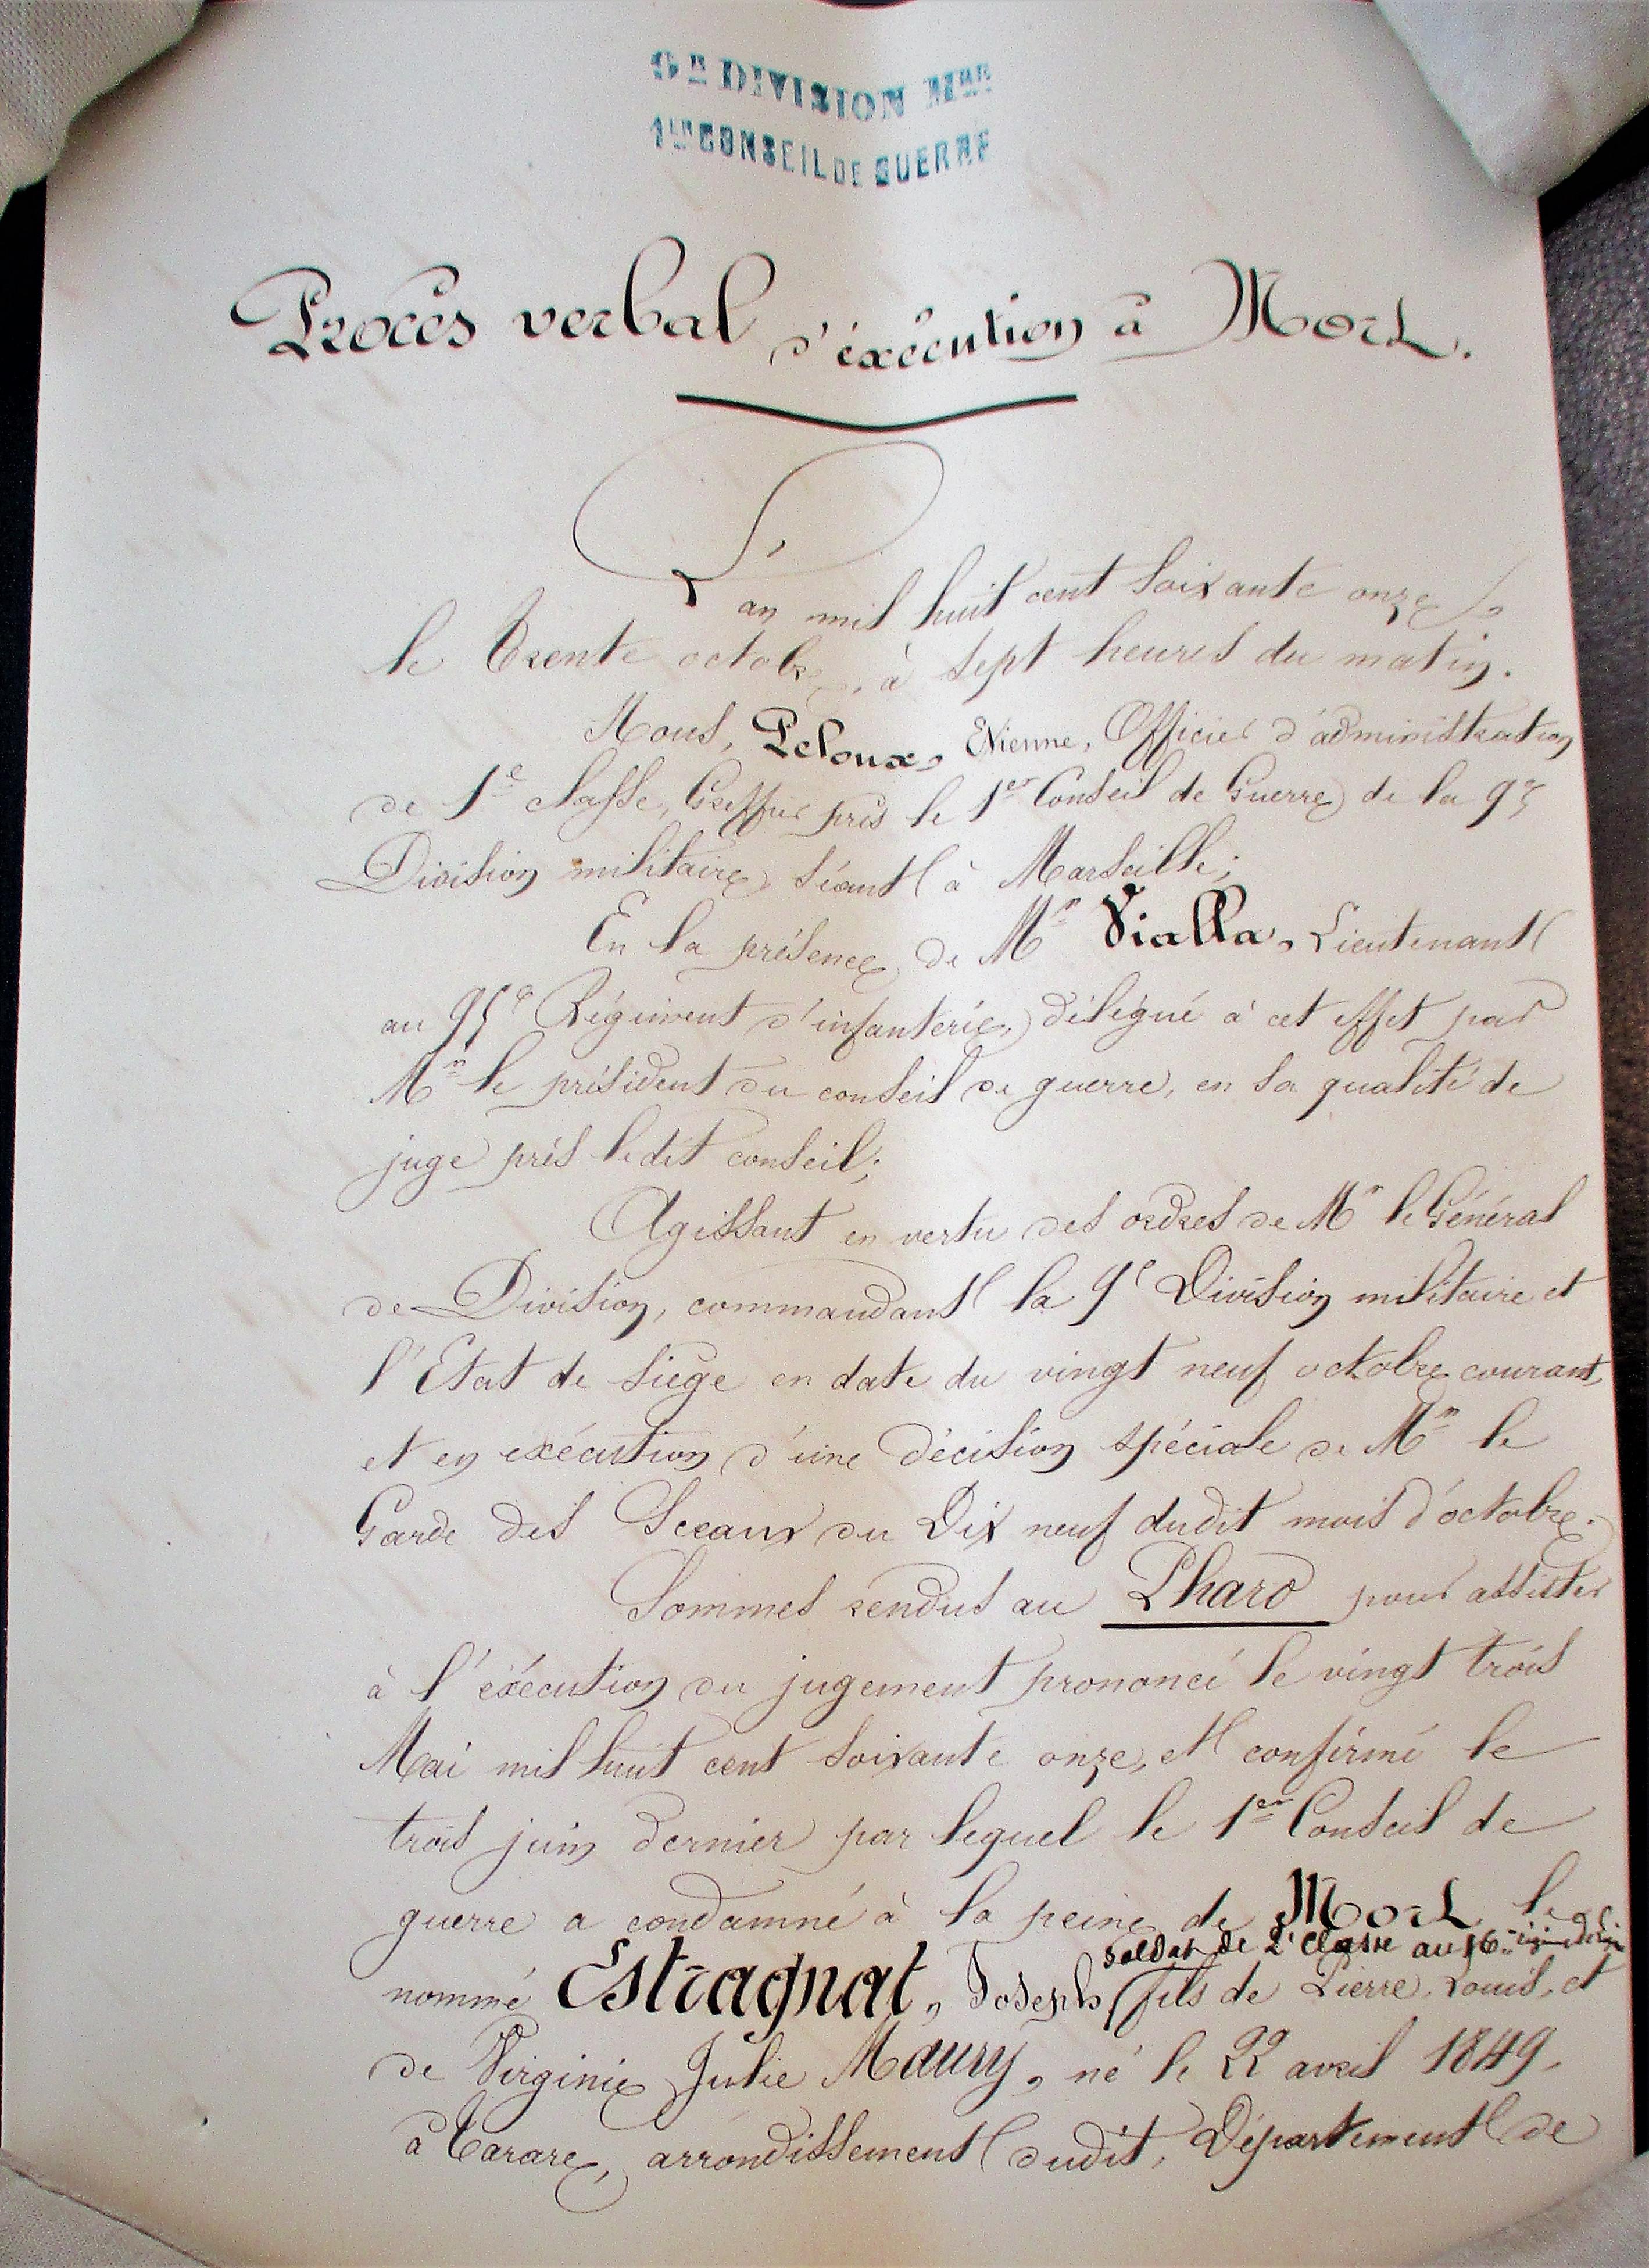 9ME DIVISION MRE
1ER CONSEIL DE GUERRE
Procès verbal d'éxécution à Mort.
L'an mil huit cent soixante onze
le trente octobre, à sept heures du matin.
Nous, Peloux, Etienne, Officier d'administration
de 1e classe, Greffier près le 1er Conseil de Guerre de la 9e
Division militaire, séant à Marseille;
En la présence de Mr Vialla, Lieutenant
au 95e Régiment d'infanterie, délégué à cet effet par
Mr le président du conseil de guerre, en sa qualité de
juge près ledit conseil;
Agissant en vertu des ordres de Mr le Général
de Division, commandant la 9e Division militaire et
l'Etat de siège en date du vingt neuf octobre courant,
et en exécution d'une décision spéciale de Mr le
Garde des Sceaux du Dix neuf dudit mois d'octobre.
Sommes rendus au Pharo pour assister
à l'éxécution du jugement prononcé le vingt trois
Mai mil huit cent soixante onze, et confirmé le
trois juin dernier par lequel le 1er Conseil de
guerre a condamné à la peine de Mort le
soldat de 2e classe au 16e
nommé Estragnat, Joseph, fils de Pierre, Louis, et
de Virginie Julie Maury, né le 22 avril 1849,
à Tarare, arrondissement dudit, Département de